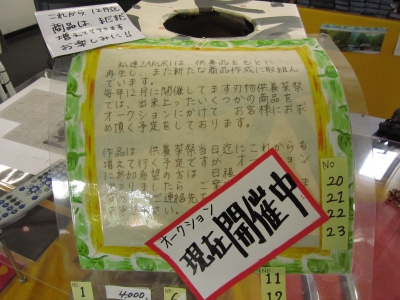 これから12月迄
商品は まだまだ
増えてきますヨ
お楽しみに!!
私達ZAKURIは、供養品をもとに
再生し、また新たな商品作成に取組ん
でいます。
毎年12月に開催してます刃物供養祭
では、出来上ったいくつかの商品を
オークションにかけて お客様にお求
め頂く予定をしております。
作品は 供養祭当日迄にこれからも
増えて行く予定ですが オークション
に参加希望の方は 日様
まりましたら ご
ご連絡先
さい。
オークション
現在開催中
NO
20
21
22
23
NO
1
4,000
NO
6
NO
11
12